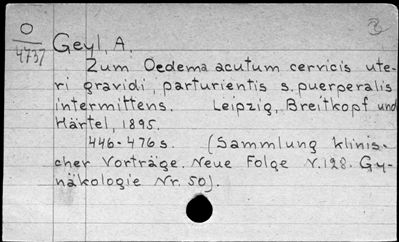 O
4737
Geyl, A.
Zum Oedema acutum cervicis ute-
ri gravidi, parturientis s. puerperalis
intermittens. Leipzig, Breitkopf und
Härtel, 1895.
446-476 s. (Sammlung klinis-
cher Vorträge. Neue Folge N. 128. Gy-
näkologie Nr. 50).